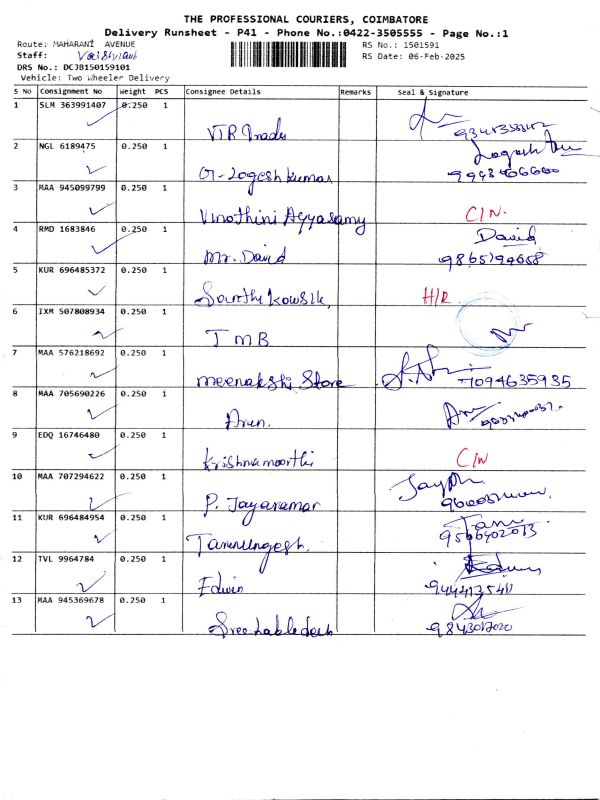 THE PROFESSIONAL COURIERS, COIMBATORE
Delivery Runsheet - P41 - Phone No.:0422-3505555 - Page No.:1
Route: MAHARANI AVENUE
RS No.: 1501591
Staff:
RS Date: 06-Feb-2025
DRS No.: DCJB150159101
Vehicle: Two Wheeler Delivery
S No Consignment No Weight PCS Consignee Details Remarks Seal & Signature
1 SLM 363991407 0.250 1
VTR Trades
2 NGL 6189475 0.250 1
G-Logesh kumar
3 MAA 945099799 0.250 1
Vinothini Ayyasamy C/N.
4 RMD 1683846 0.250 1 David
Mr. David 9865794658
5 KUR 696485372 0.250 1
H/R
6 IXM 507808934 0.250 1
TMB
7 MAA 576218692 0.250 1
meenakshi Store 7094635935
8 MAA 705690226 0.250 1
Arun.
9 EDQ 16746480 0.250 1
Krishnamoorthi C/N
10 MAA 707294622 0.250 1
P. Jayaramar
11 KUR 696484954 0.250 1
9566402013
12 TVL 9964784 0.250 1
Edwin
13 MAA 945369678 0.250 1
9843012020